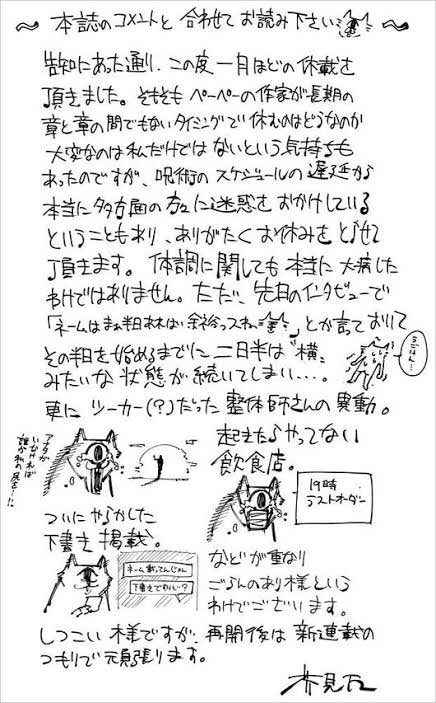 本誌のコメントと合わせてお読み下さい
告知にあった通り、この度一月ほどの休載を
頂きました。そもそもペーペーの作家が長期の
章と章の間でもないタイミングで休むのはどうなのか
大変なのは私だけではないという気持ちも
あったのですが、呪術のスケジュールの遅延から
本当に多方面の方々に迷惑をおかけしている
ということもあり、ありがたくお休みをとらせて
頂きます。体調に関しても本当に大病した
わけではありません。ただ、先日のインタビューで
「ネームはまぁ半日あれば余裕っスね」とか言っておいて
その半日を始めるまでに二日半は"横"
みたいな状態が続いてしまい…。
うごけん…
更にツーカー(?)だった整体師さんの異動。
アナタが
いなければ
誰が私の尻を…!!
起きたらやってない
飲食店。
19時
ラストオーダー
ついにやらかした
下書き掲載。
ネーム載ってんじゃん
下書きでわ?
などが重なり
ごらんのあり様という
わけでございます。
しつこい様ですが、再開後は新連載の
つもりで頑張ります。
芥見下々